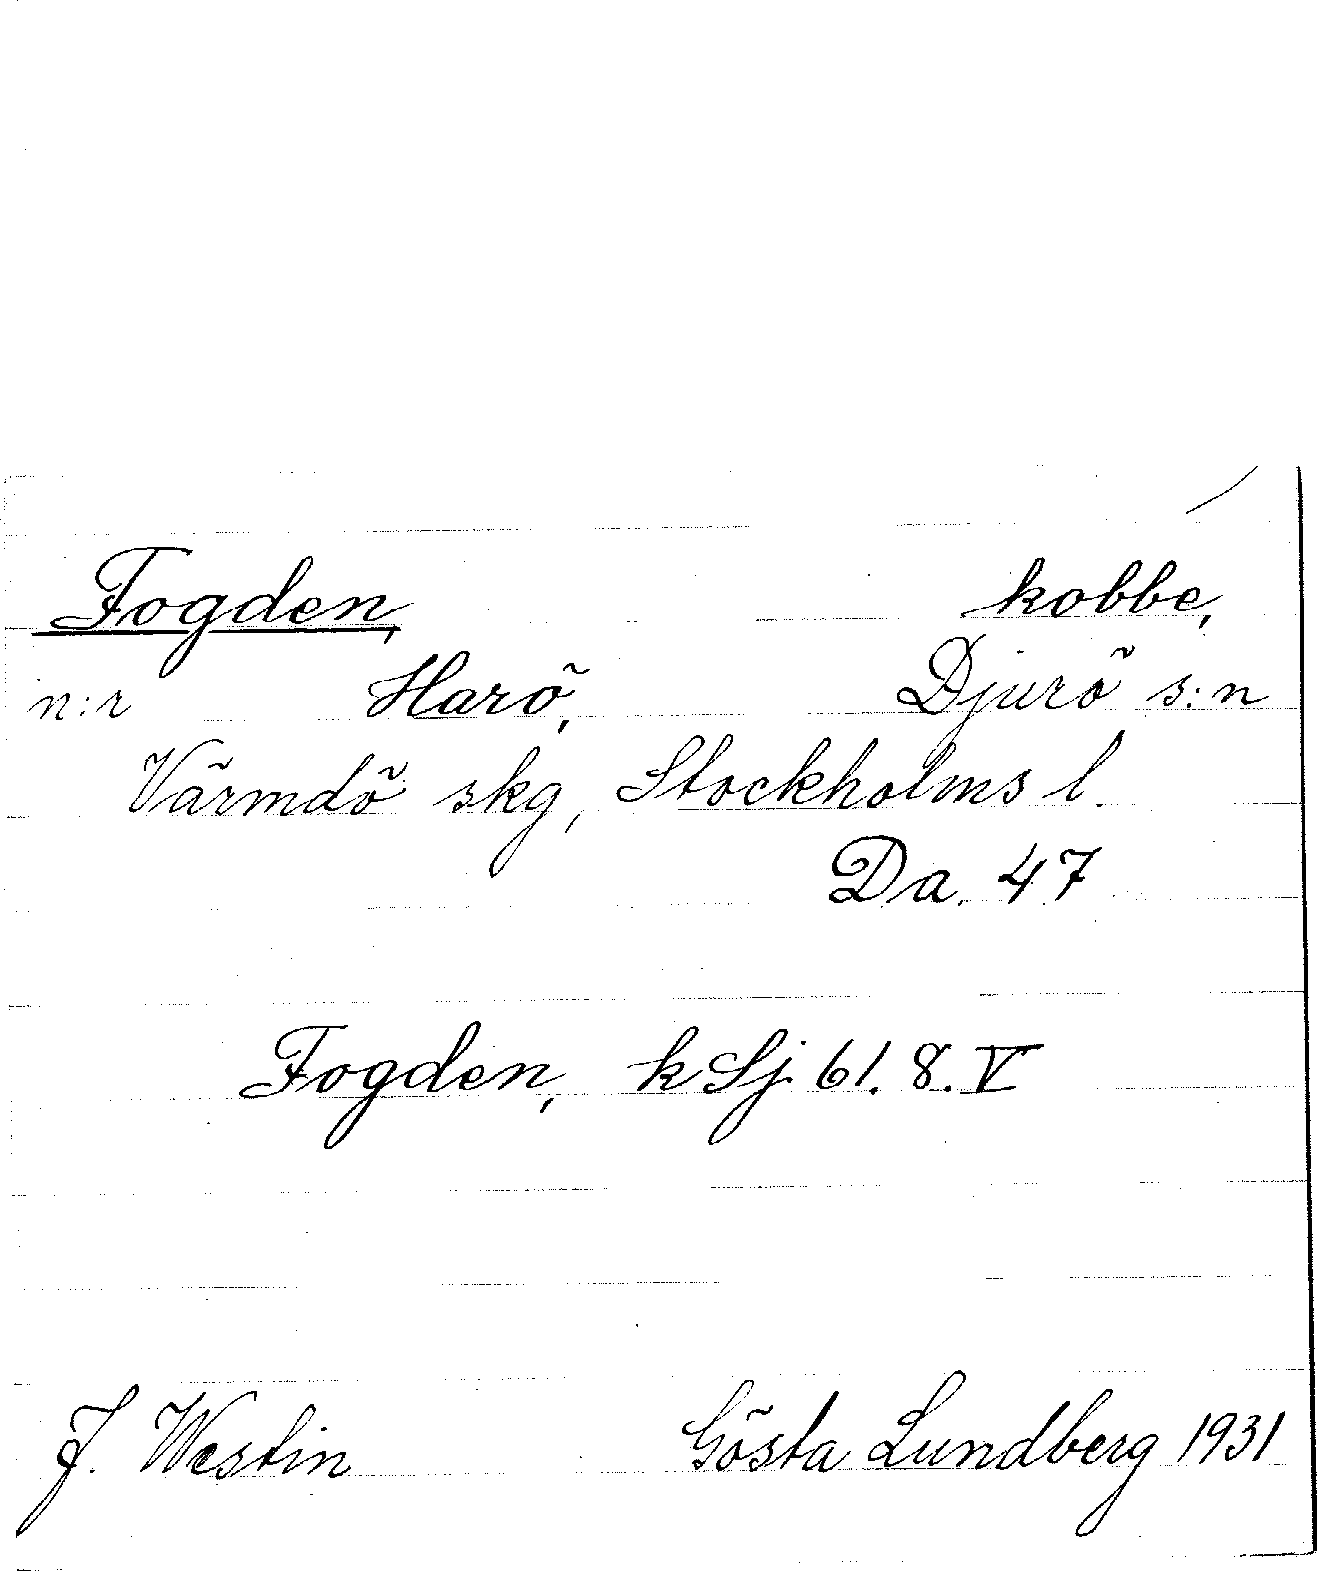 Fogden, kobbe,
n:r Harö, Djurö s:n
Värmdö skg, Stockholms l.
Da. 47
Fogden, k Sj. 61. 8. V
J. Westin Gösta Lundberg 1931